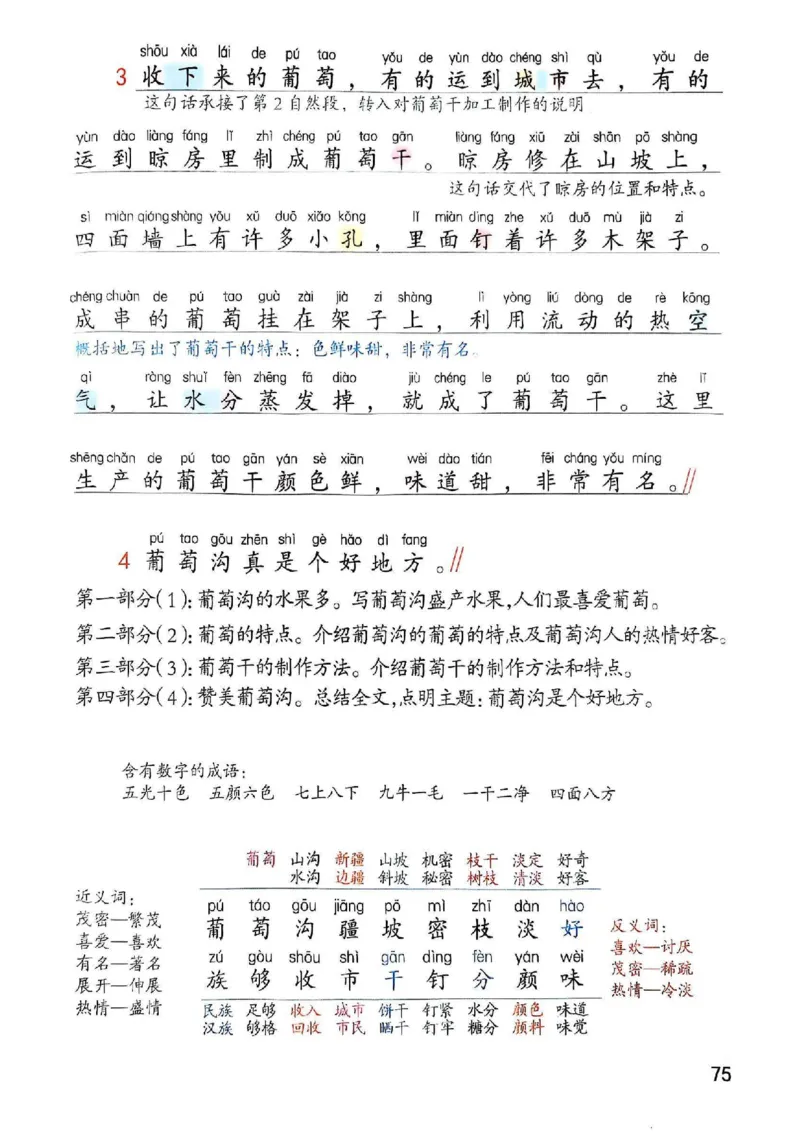 shōu xià lái de pú tao yǒu de yùn dào chéng shì qù yǒu de
3 收下来的葡萄，有的运到城市去，有的
这句话承接了第2自然段，转入对葡萄干加工制作的说明
yùn dào liàng fáng lǐ zhì chéng pú tao gān liàng fáng xiū zài shān pō shàng
运到晾房里制成葡萄干。晾房修在山坡上，
这句话交代了晾房的位置和特点。
sì miàn qiáng shàng yǒu xǔ duō xiǎo kǒng lǐ miàn dìng zhe xǔ duō mù jià zi
四面墙上有许多小孔，里面钉着许多木架子。
chéng chuàn de pú tao guà zài jià zi shàng lì yòng liú dòng de rè kōng
成串的葡萄挂在架子上，利用流动的热空
概括地写出了葡萄干的特点：色鲜味甜，非常有名。
qì ràng shuǐ fèn zhēng fā diào jiù chéng le pú tao gān zhè lǐ
气，让水分蒸发掉，就成了葡萄干。这里
shēng chǎn de pú tao gān yán sè xiān wèi dào tián fēi cháng yǒu míng
生产的葡萄干颜色鲜，味道甜，非常有名。//
pú tao gōu zhēn shì gè hǎo dì fang
4 葡萄沟真是个好地方。//
第一部分(1)：葡萄沟的水果多。写葡萄沟盛产水果，人们最喜爱葡萄。
第二部分(2)：葡萄的特点。介绍葡萄沟的葡萄的特点及葡萄沟人的热情好客。
第三部分(3)：葡萄干的制作方法。介绍葡萄干的制作方法和特点。
第四部分(4)：赞美葡萄沟。总结全文，点明主题：葡萄沟是个好地方。
含有数字的成语：
五光十色 五颜六色 七上八下 九牛一毛 一干二净 四面八方
葡萄 山沟 新疆 山坡 机密 枝干 淡定 好奇
水沟 边疆 斜坡 秘密 树枝 清淡 好客
pú táo gōu jiāng pō mì zhī dàn hào
葡 萄 沟 疆 坡 密 枝 淡 好
zú gòu shōu shì gān dìng fèn yán wèi
族 够 收 市 干 钉 分 颜 味
民族 足够 收入 城市 饼干 钉紧 水分 颜色 味道
汉族 够格 回收 市民 晒干 钉牢 糖分 颜料 味觉
近义词：
茂密—繁茂
喜爱—喜欢
有名—著名
展开—伸展
热情—盛情
反义词：
喜欢—讨厌
茂密—稀疏
热情—冷淡
75